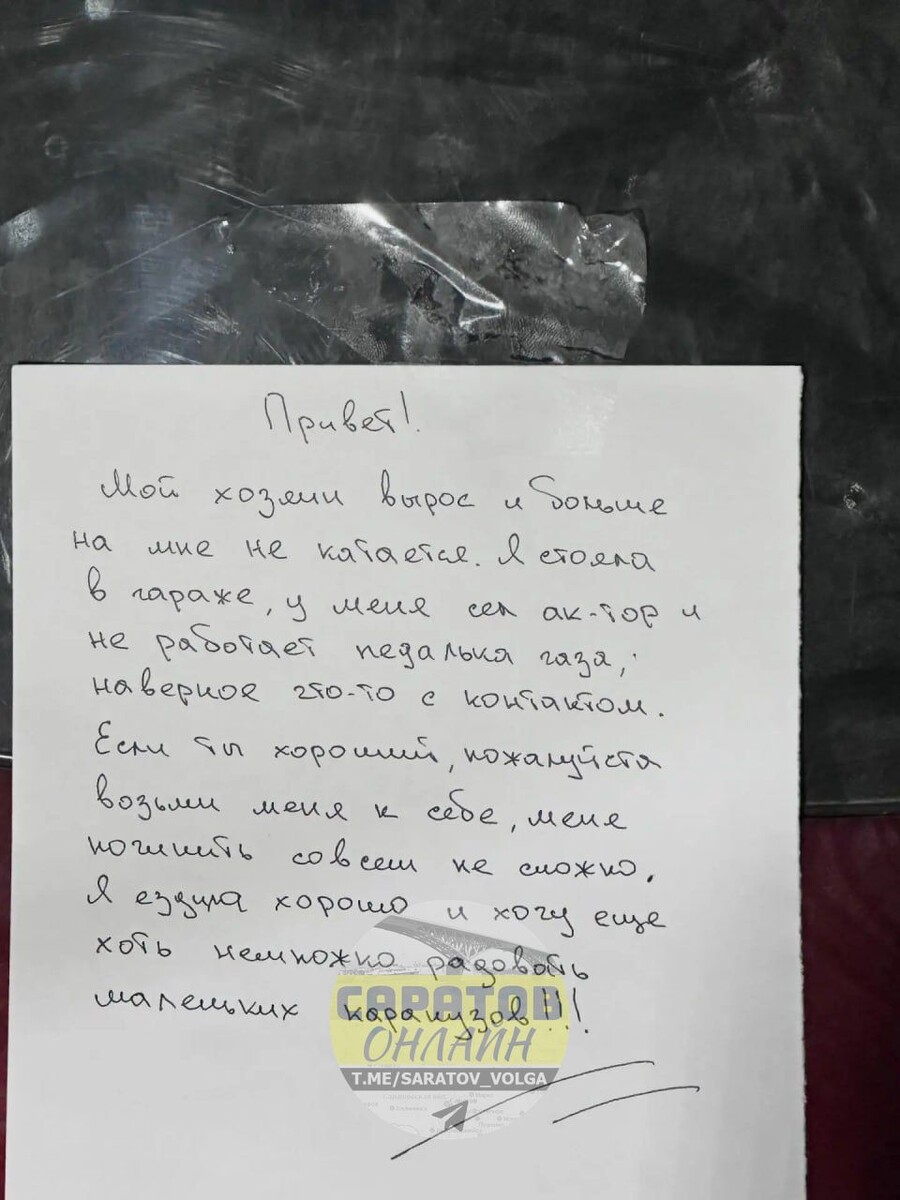 Привет!
Мой хозяин вырос и больше
на мне не катается. Я стояла
в гараже, у меня сел ак-тор и
не работает педалька газа,
наверное что-то с контактом.
Если ты хороший, пожалуйста
возьми меня к себе, меня
починить совсем не сложно.
Я ездила хорошо и хочу еще
хоть немножко радовать
маленьких карапузов!!!
САРАТОВ
ОНЛАЙН
T.ME/SARATOV_VOLGA